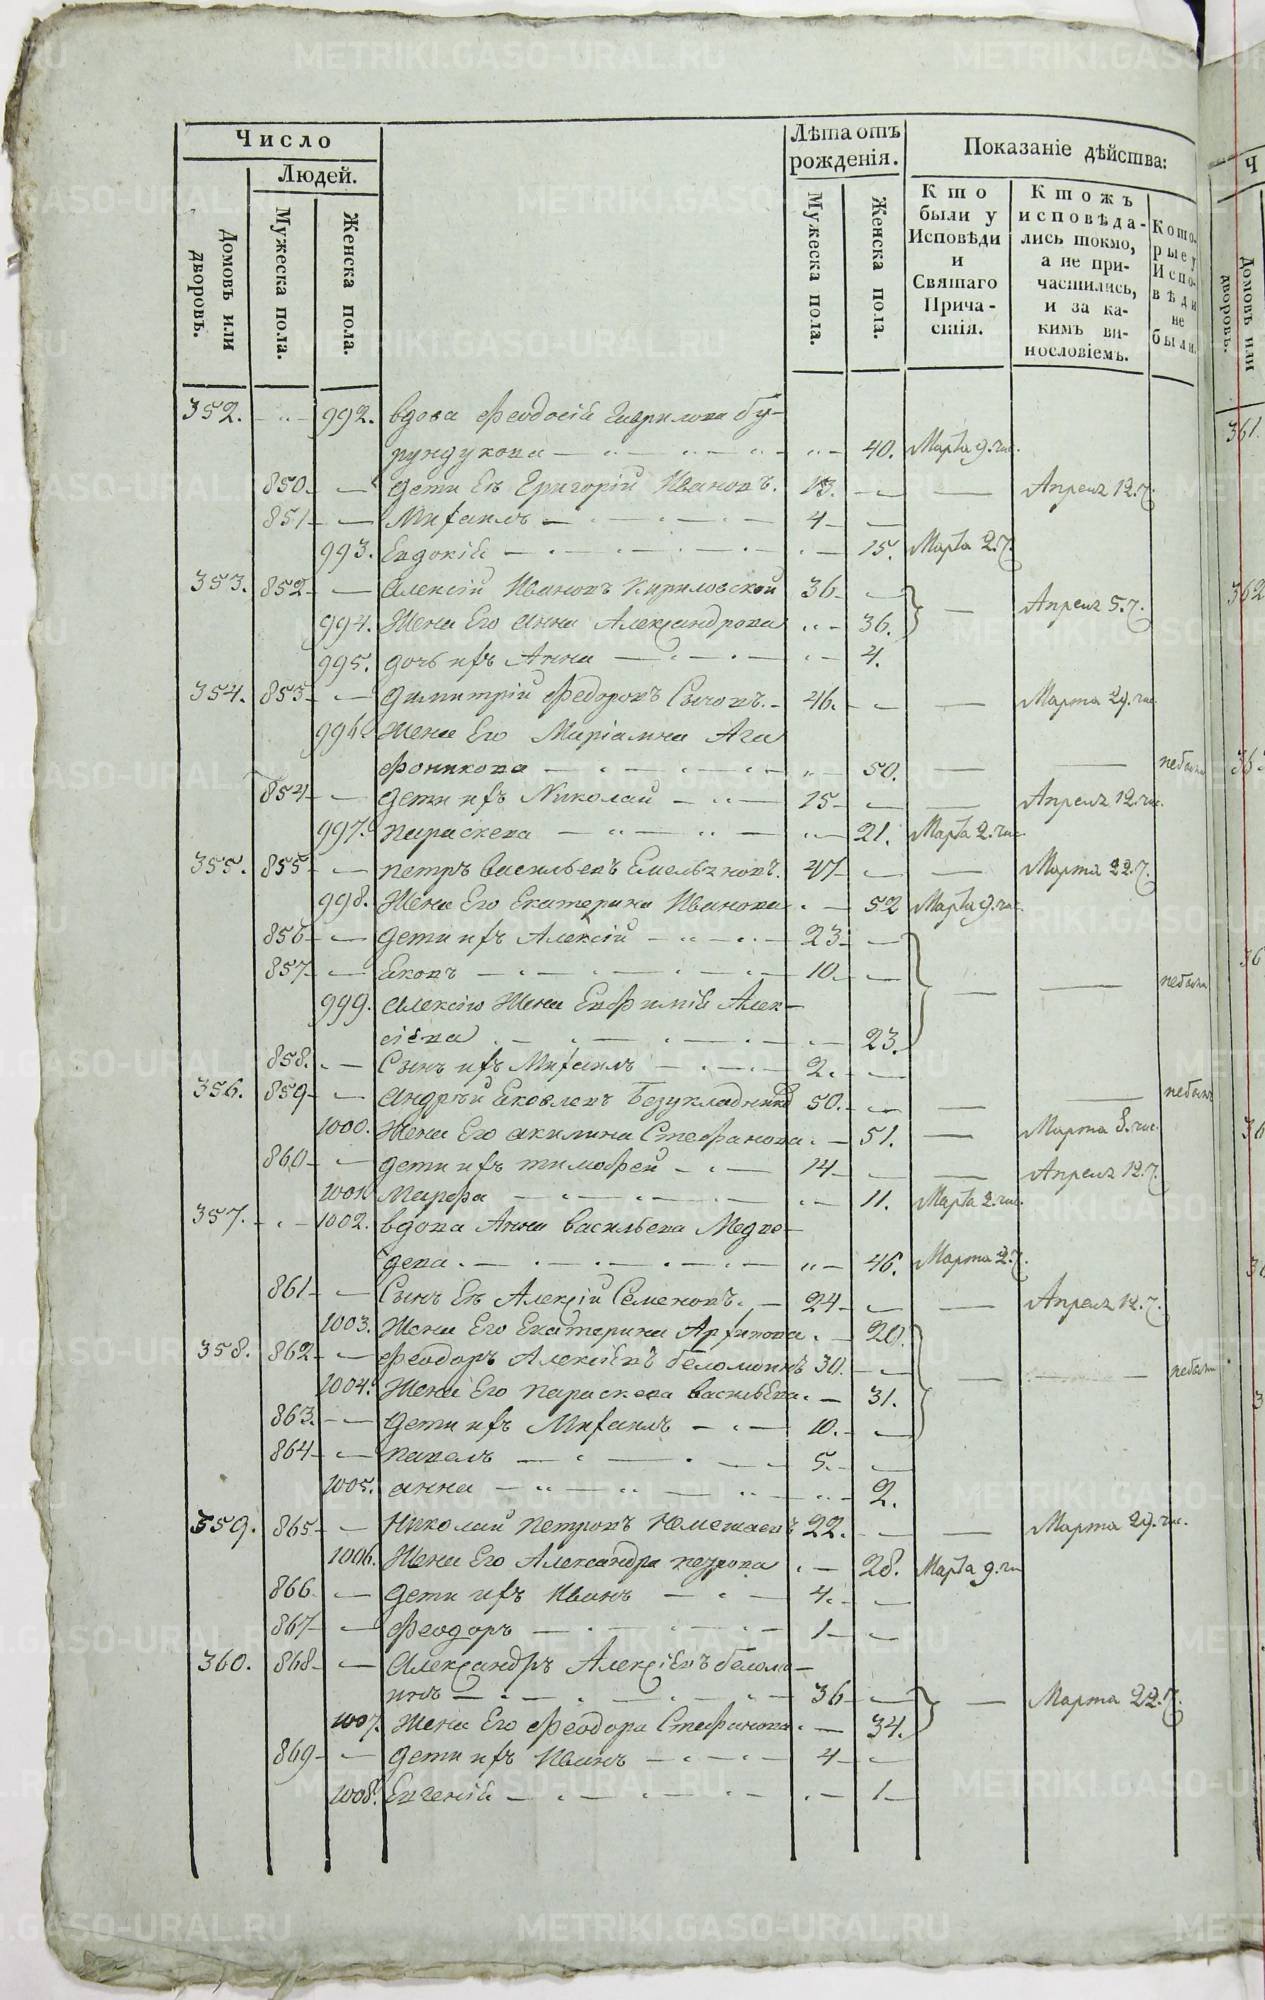 Число
Людей.
Домовъ или дворовъ.
Мужеска пола.
Женска пола.
Лѣта отъ рожденія.
Мужеска пола.
Женска пола.
Показаніе дѣйства:
Кто были у Исповѣди и Святаго Прича-стія.
Ктожъ исповѣда-лись токмо, а не при-частились, и за ка-кимъ ви-нословіемъ.
Кото-рые у Испо-вѣди не были.
352. 992. вдова Феодосія Гаврилова Бу-
рундукова 40. Марта 9. чис.
850. дети Ея Григорій Ивановъ. 13. Апреля 12.ч.
851 Михаилъ 4
993. Евдокія 15. Марта 2.ч.
353. 852 Алексій Ивановъ Кириловской 36
994. Жена Его Анна Александрова 36. Апреля 5.ч.
995. дочь ихъ Анна 4.
354. 853 Димитрій Федоровъ Сычовъ. 46. Марта 29. чис.
996 Жена Его Маріамна Ага
фоникова 50. небыла
854 дети ихъ Николай 15 Апреля 12. чис.
997. Параскева 21. Марта 2. чис.
355. 855 Петръ Васильевъ Емельяновъ. 47 Марта 22.ч.
998. Жена Его Екатерина Иванова 52 Марта 9. чис.
856 дети ихъ Алексій 23
857 Яковъ 10. небыли
999. Алексію Жена Евфимія Алек-
сіева 23.
858. Сынъ ихъ Михаилъ 2.
356. 859 Андрей Яковлевъ Безукладнико 50. небылъ
1000. Жена Его Акилина Стефанова 51. Марта 8. чис.
860 дети ихъ Тимофей 14 Апреля 12.ч.
1001. Марфа 11. Марта 2. чис.
357. 1002. вдова Анна Васильева Медве-
дева 46. Марта 2.ч.
861 Сынъ Ея Алексій Семеновъ. 24 Апреля 12.ч.
1003. Жена Его Екатерина Архипова 20.
358. 862 Феодоръ Алексіевъ Беломоинъ 30.
1004. Жена Его Параскева Васильева 31. небыли
863. дети ихъ Михаилъ 10.
864 Павелъ 5.
1005. Анна 2.
359. 865 Николай Петровъ 22. Марта 29. чис.
1006. Жена Его Александра Петрова 28. Марта 9. чи
866 дети ихъ Иванъ 4.
867 Феодоръ 1
360. 868 Александръ Алексіевъ Беломо-
инъ 36 Марта 22.ч.
1007. Жена Его Феодора Стефанова 34.
869 дети ихъ Иванъ 4
1008. Евгенія 1
361.
362
METRIKI.GASO-URAL.RU